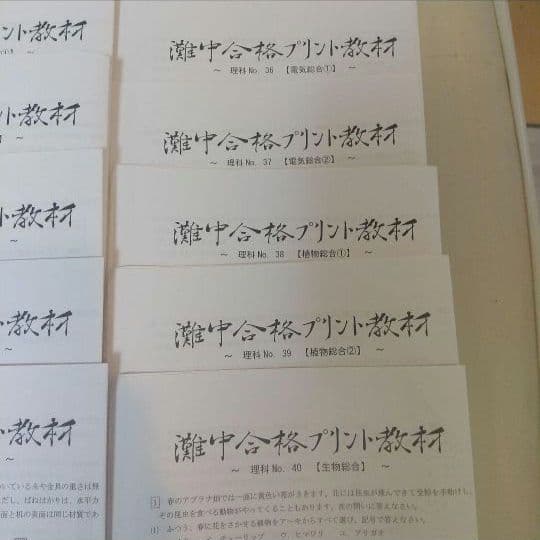 ント教材
ント教材
ント教材
～
ント教材
～
ント教材
～
いている糸や金具の重さは軽
だし、ばねはかりは、水平力
面と机の表面は同じ材質であ
灘中合格プリント教材
～ 理科No. 36 【電気総合①】 ～
灘中合格プリント教材
～ 理科No. 37 【電気総合②】 ～
灘中合格プリント教材
～ 理科No. 38 【植物総合①】 ～
灘中合格プリント教材
～ 理科No. 39 【植物総合②】 ～
灘中合格プリント教材
～ 理科No. 40 【生物総合】 ～
1 春のアブラナ畑では一面に黄色い花がさきます。花には昆虫が飛んできて受粉を手助けし、
その昆虫を食べる動物がやってくることもあります。次の問いに答えなさい。
(1) ふつう、春に花をさかせる植物をア～キからすべて選び、記号で答えなさい。
チューリップ ウ. ヒマワリ エ. アサガオ